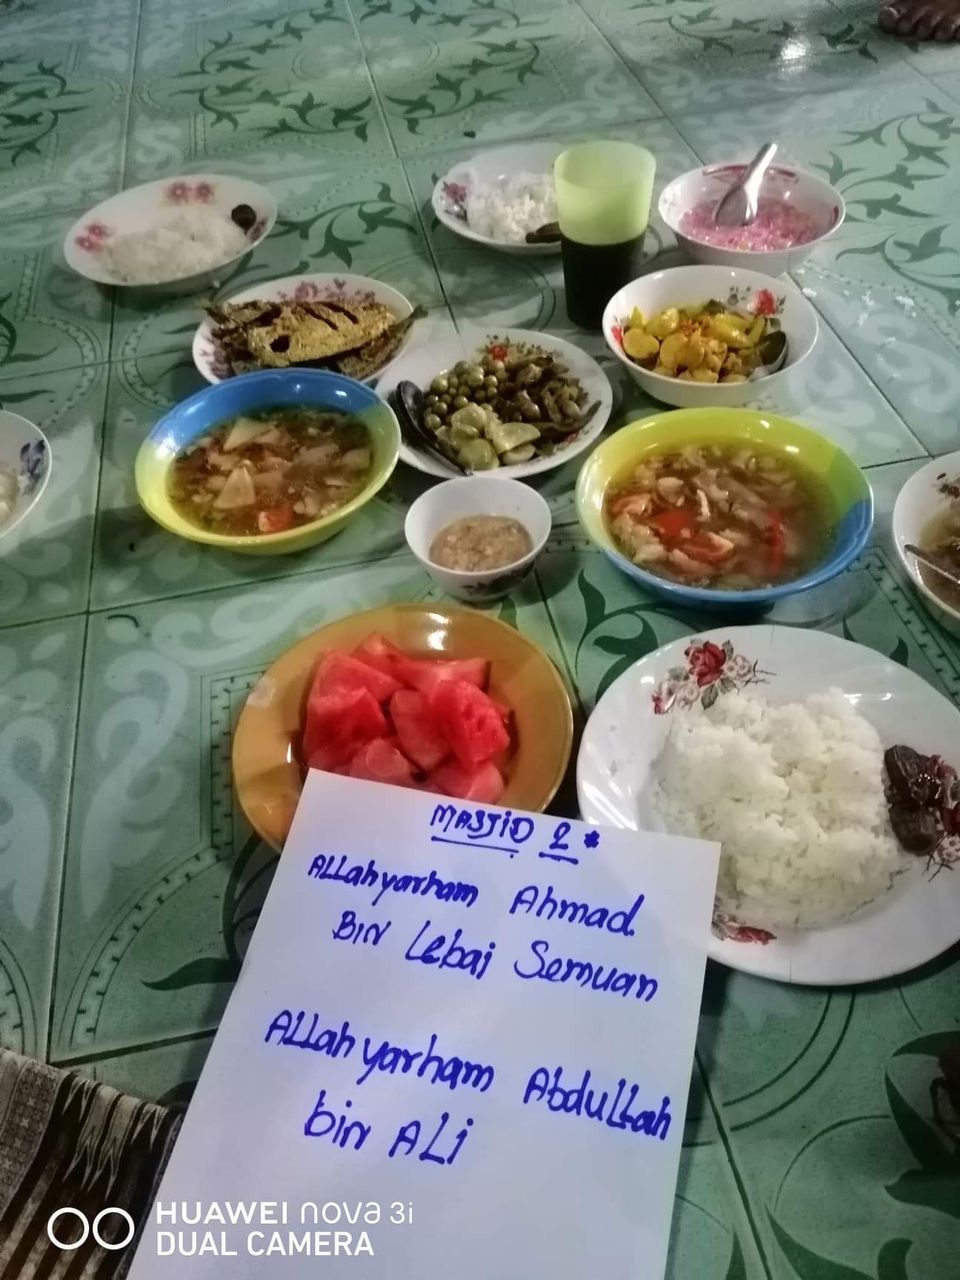 MASJID 2 *
ALLahyarham Ahmad
BIN Lebai Semuan
ALLahyarham AbduLLah
bin ALi
HUAWEI nova 3i
DUAL CAMERA